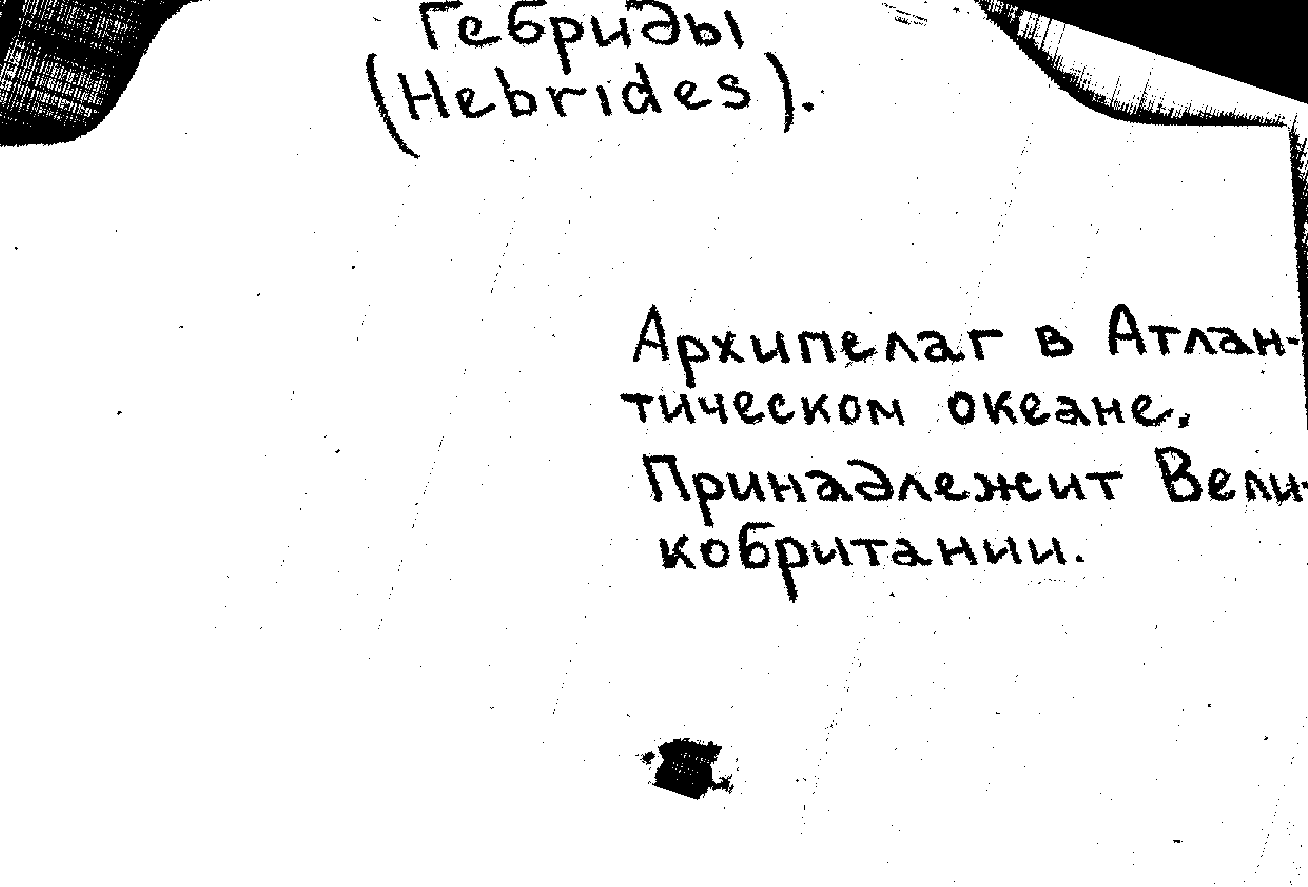 Гебриды
(Hebrides).
Архипелаг в Атлан-
тическом океане.
Принадлежит Вели-
кобритании.